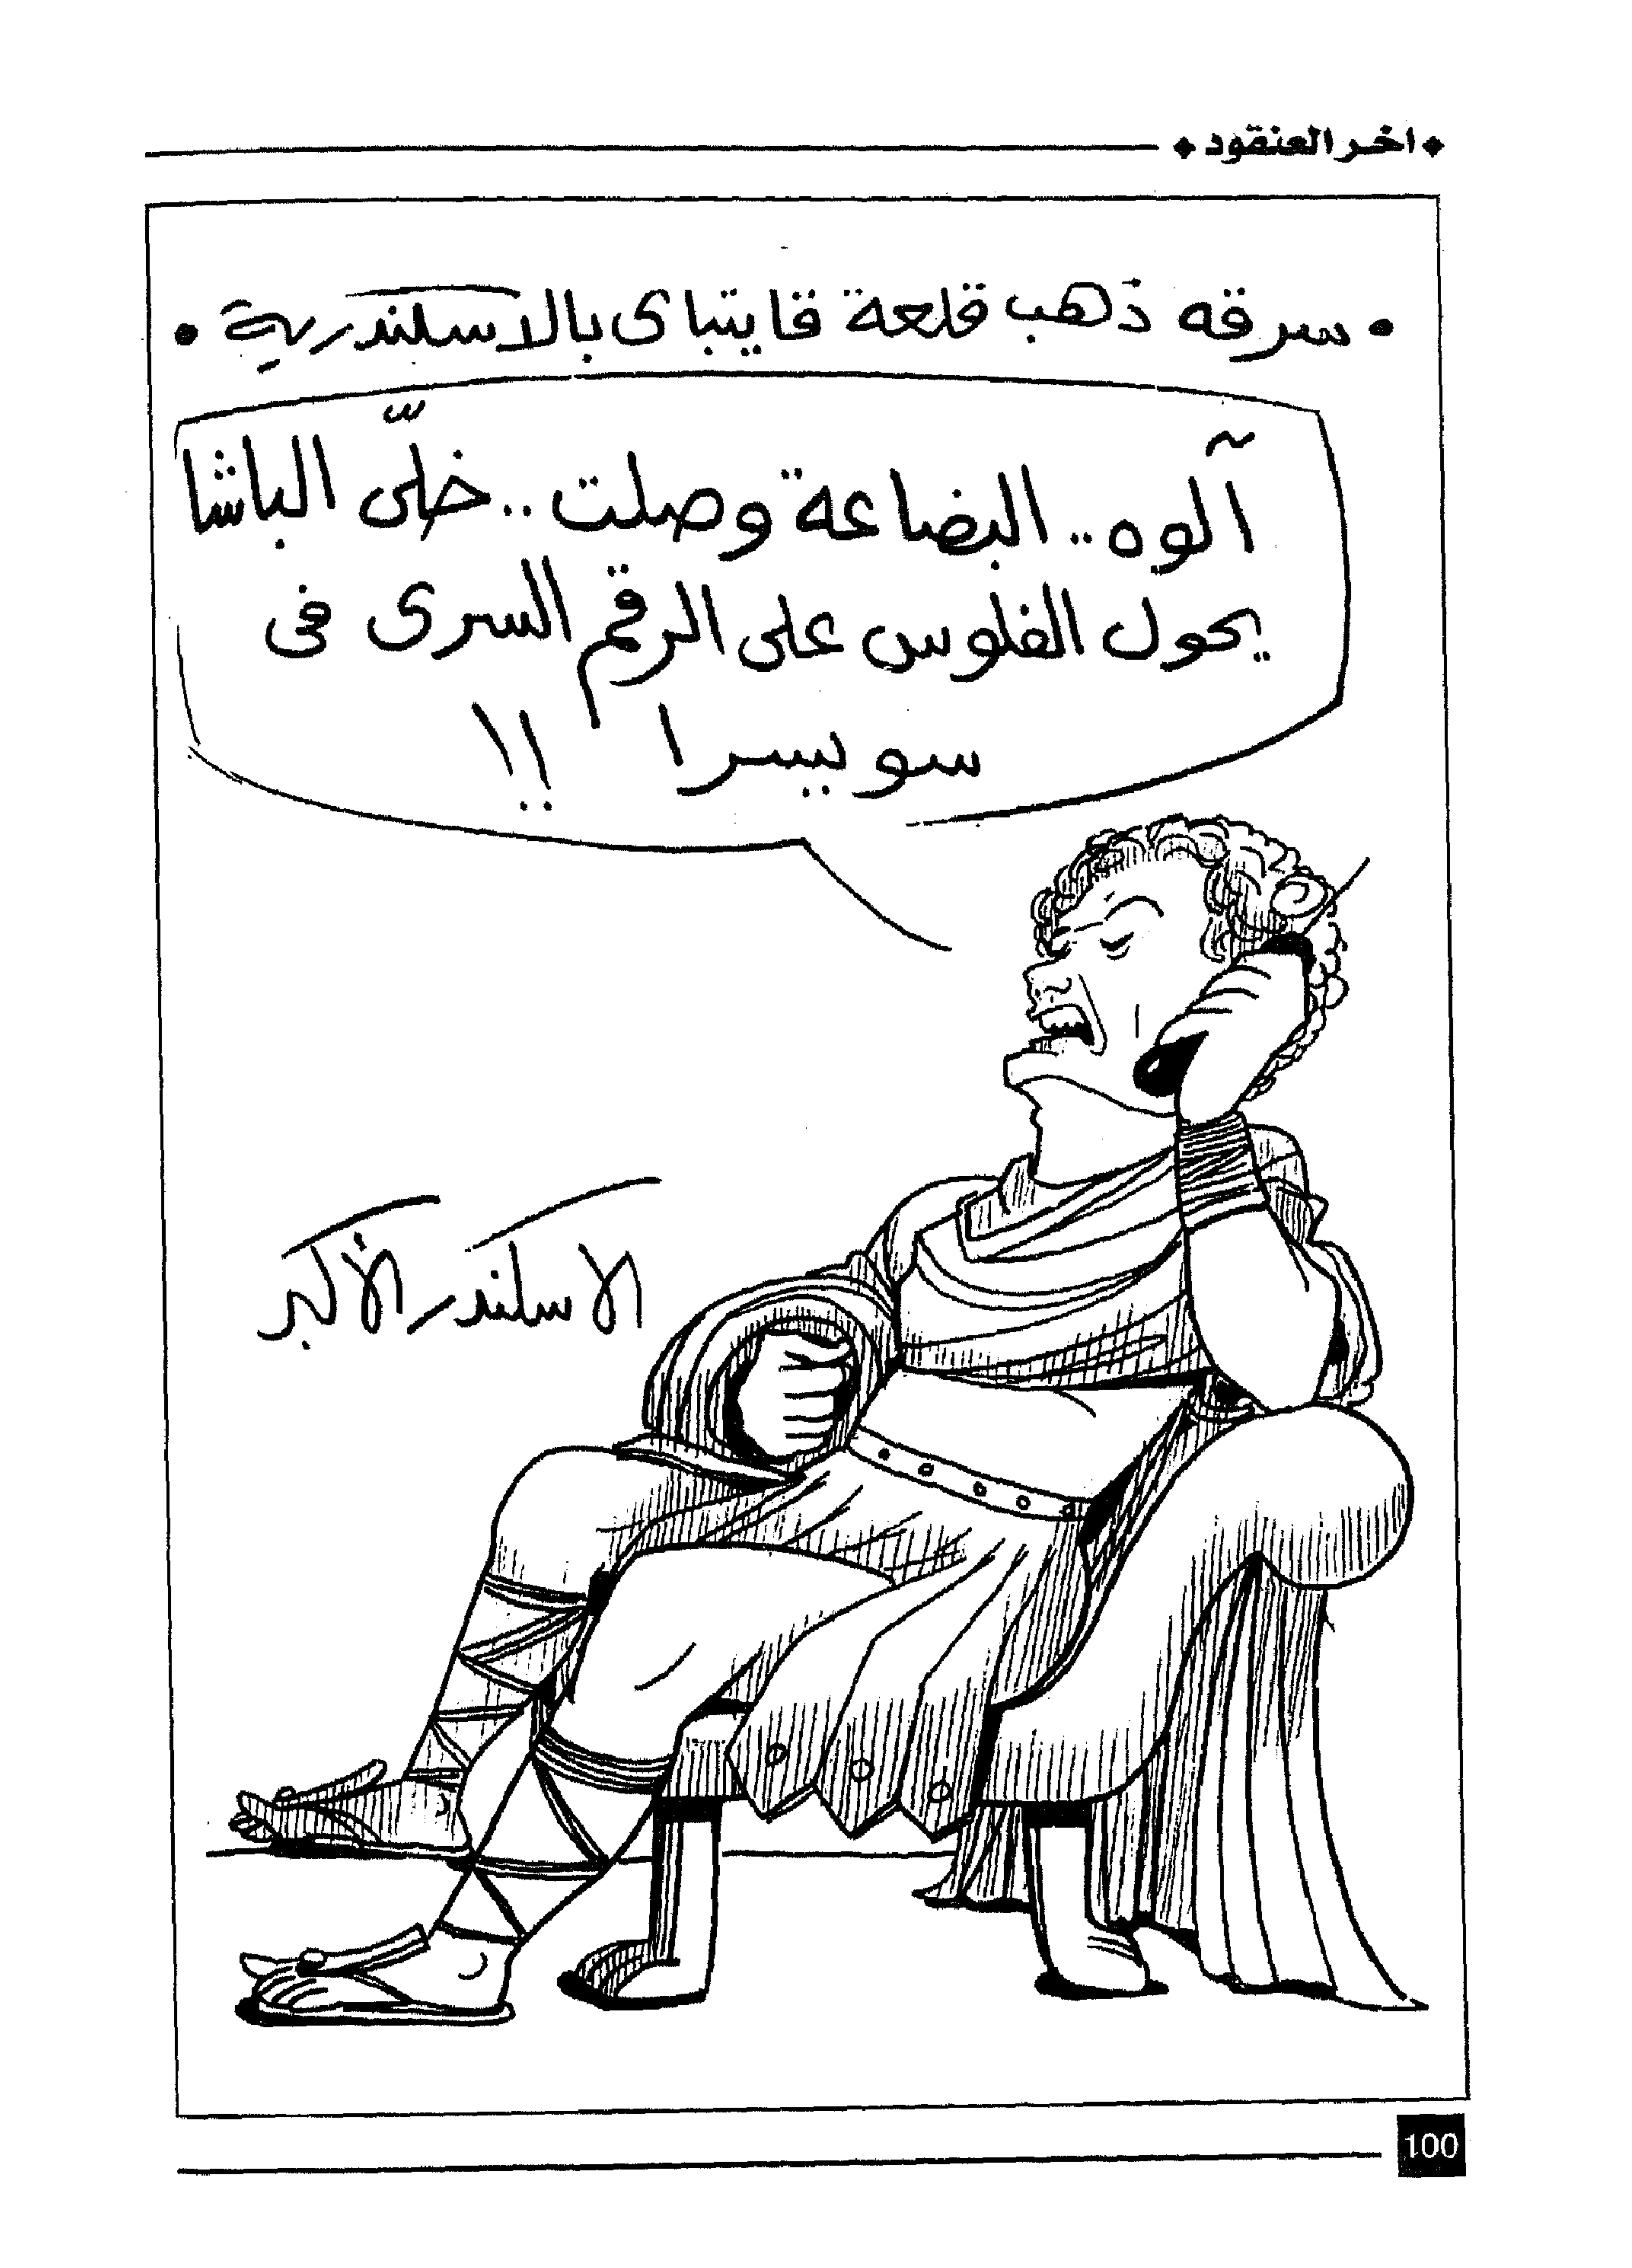 اخر العنقود
• سرقه ذهب قلعة قايتباى بالاسكندرية •
آلوه .. البضاعة وصلت .. خلّى الباشا
يحول الفلوس على الرقم السرى فى
سويسرا !!
الاسكندر الأكبر
100